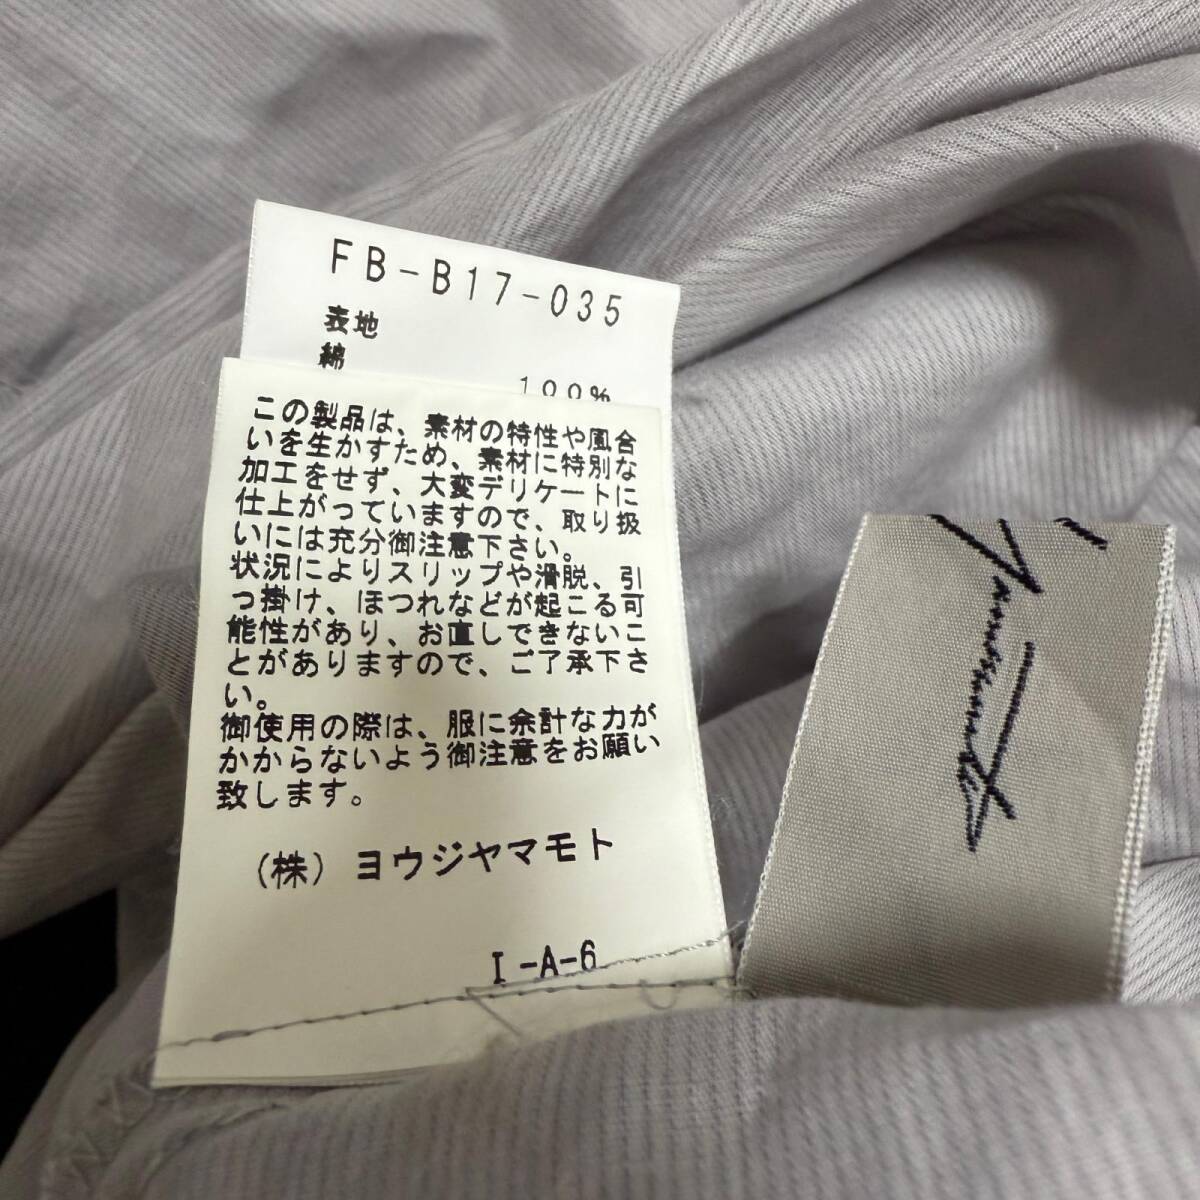 FB-B17-035
表地
綿
100%
この製品は、素材の特性や風合
いを生かすため、素材に特別な
加工をせず、大変デリケートに
仕上がっていますので、取り扱
いには充分御注意下さい。
状況によりスリップや滑脱、引
っ掛け、ほつれなどが起こる可
能性があり、お直しできないこ
とがありますので、ご了承下さ
い。
御使用の際は、服に余計な力が
かからないよう御注意をお願い
致します。
(株)ヨウジヤマモト
I-A-6